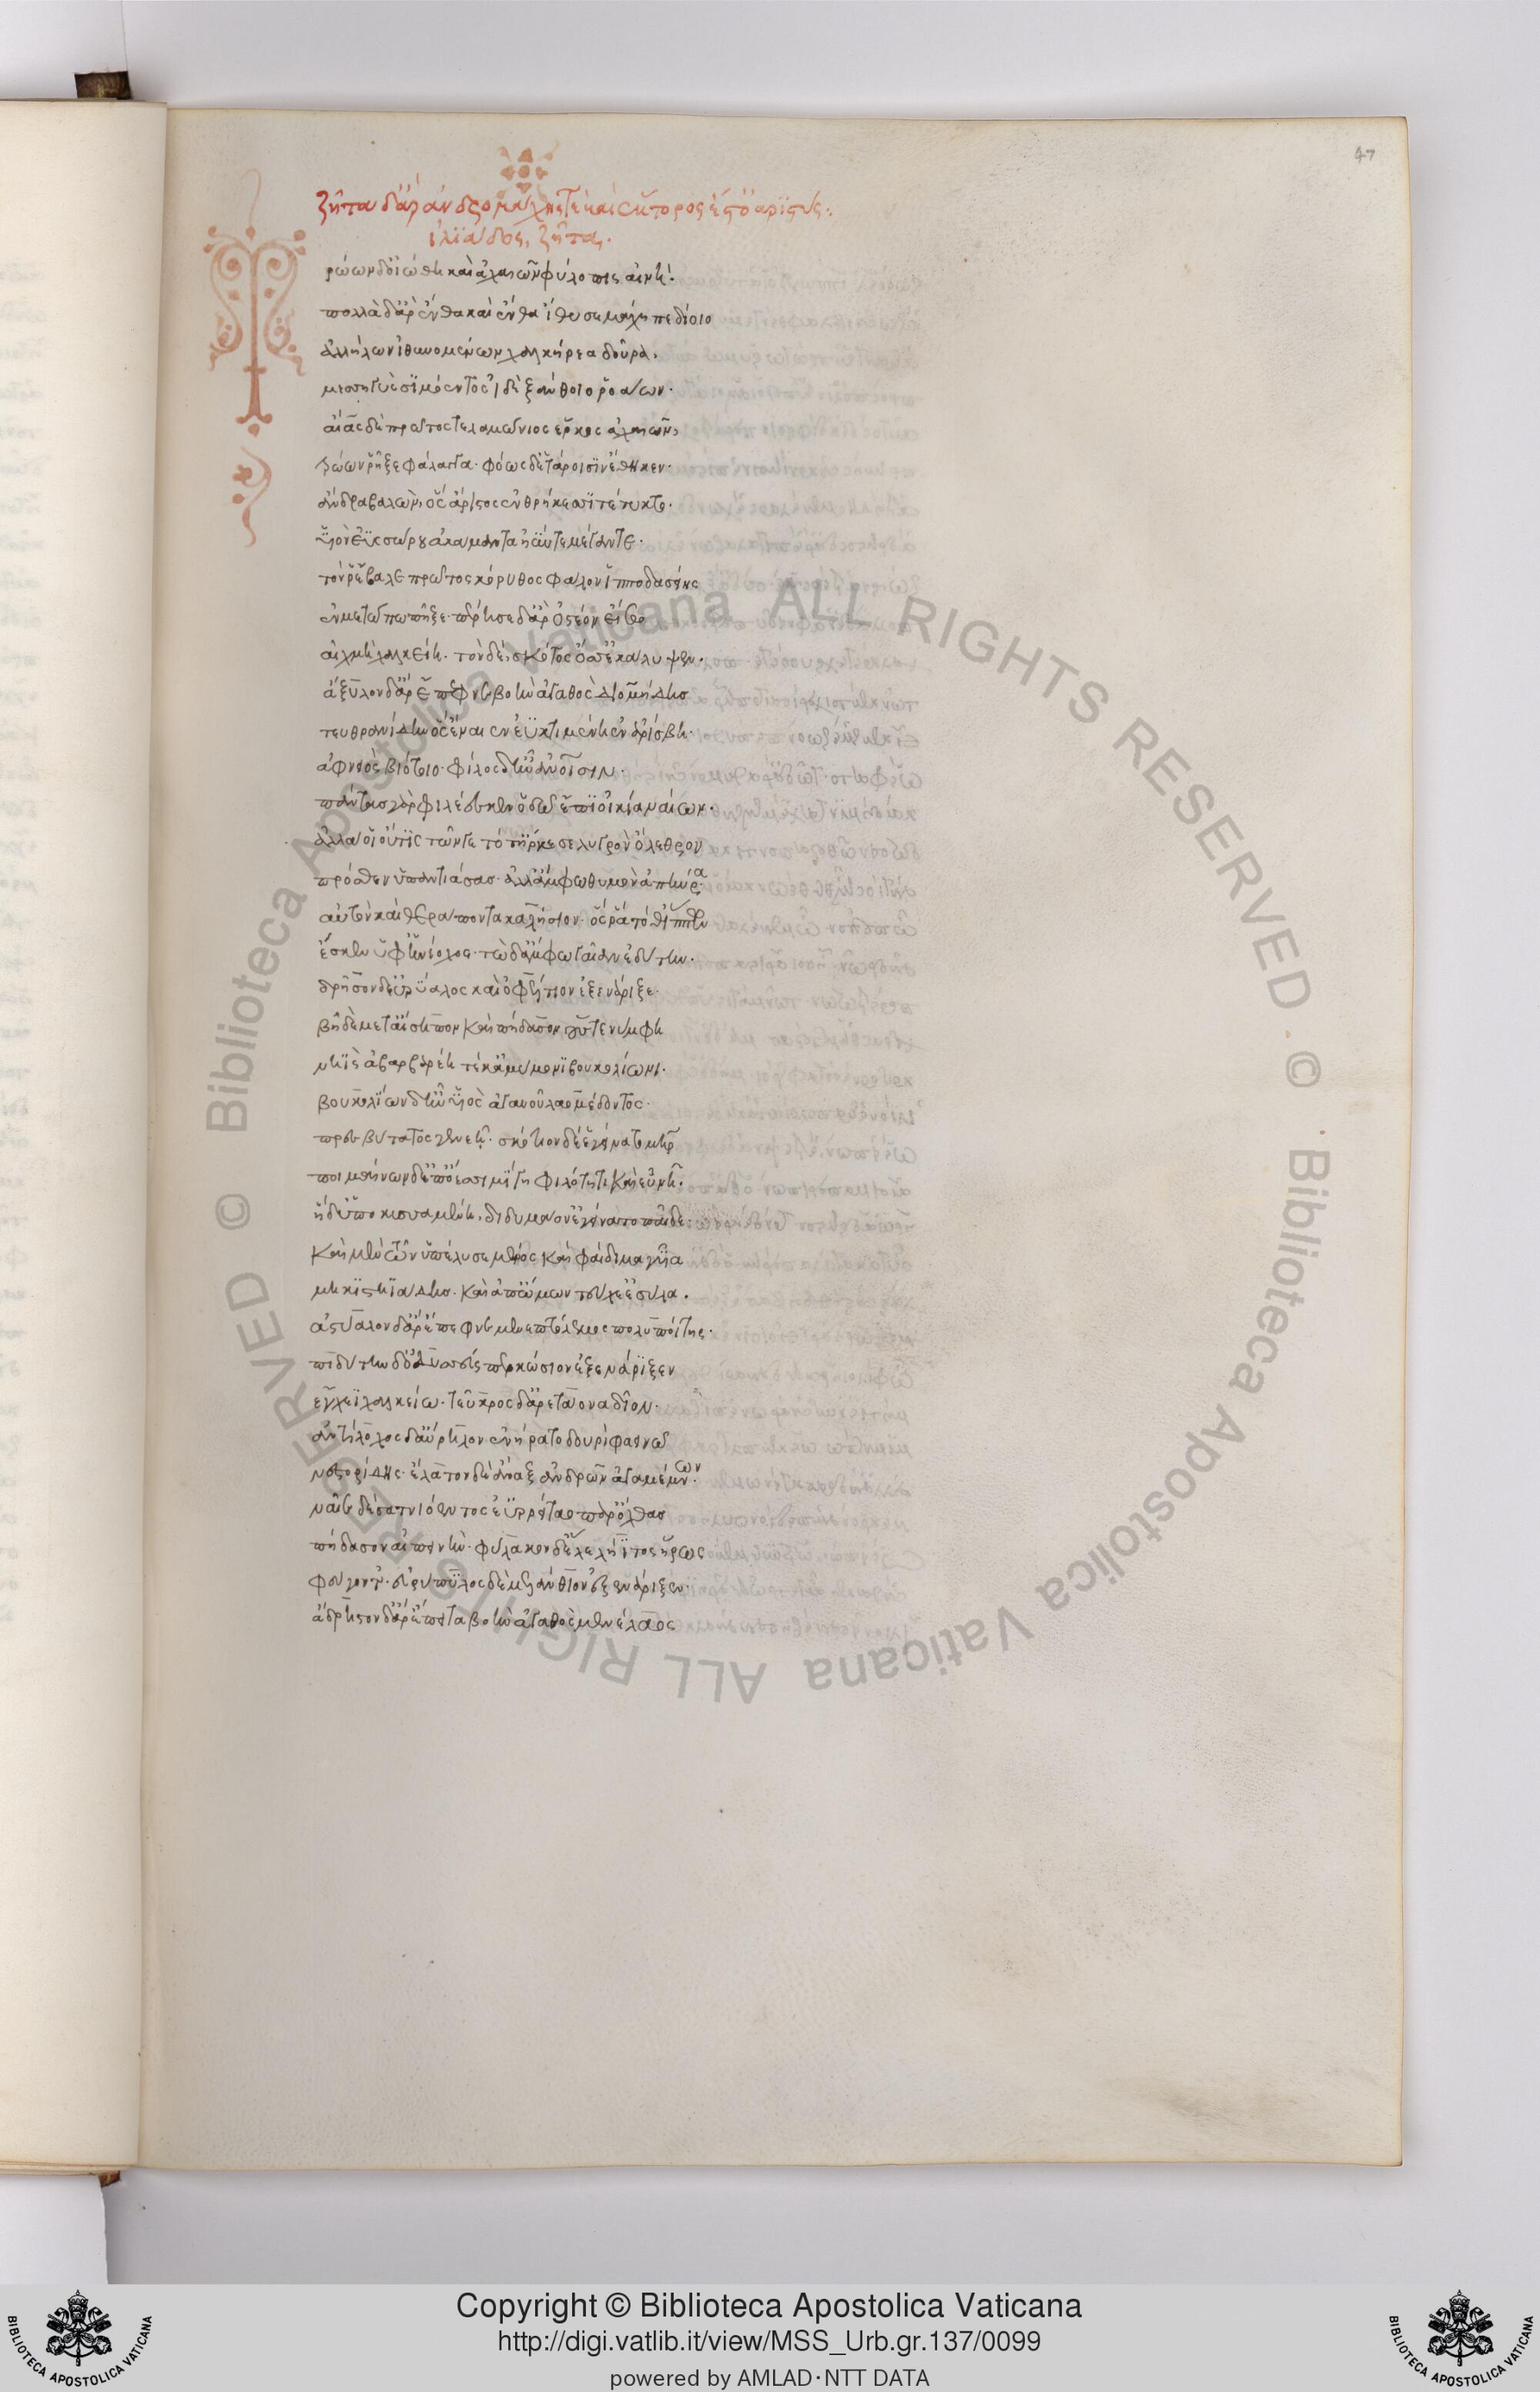 47
ζῆτα δ' ἄρ' ἀνδρομάχης τὲ καὶ ἕκτορός ἐστ' ὀαριστύς:
ἰλιάδος, ζῆτα.
Τ
ρώων δ' οἰώθη καὶ ἀχαιῶν φύλοπις αἰνή.
πολλὰ δ' ἄρ' ἔνθα καὶ ἔνθα ἴθυσε μάχη πεδίοιο
ἀλλήλων ἰθυνομένων χαλκήρεα δοῦρα.
μεσσηγὺς σιμόεντος ἰδὲ ξάνθοιο ῥοάων.
αἴας δὲ πρῶτος τελαμώνιος ἕρκος ἀχαιῶν,
τρώων ῥῆξε φάλαγγα. φόως δ' ἑτάροισιν ἔθηκεν.
ἄνδρα βαλὼν, ὃς ἄριστος ἐν θρήκεσσι τέτυκτο.
υἱὸν ἐϋσσώρου ἀκάμαντα ἠΰν τε μέγαν τε.
τόν ῥ' ἔβαλε πρῶτος κόρυθος φάλον ἱπποδασείης
ἐν μετώπω πῆξε. πέρησε δ' ἄρ' ὀστέον εἴσω
αἰχμὴ χαλκείη. τὸν δὲ σκότος ὄσσ' ἐκάλυψεν.
ἄξυλον δ' ἄρ' ἔπεφνε βοὴν ἀγαθὸς διομήδης
τευθρανίδην ὃς ἔναιεν ἐϋκτιμένη ἐν ἀρίσβη.
ἀφνειὸς βιότοιο. φίλος δ' ἦν ἀνθρώποισιν.
πάντας γὰρ φιλέεσκεν ὁδῶ ἔπι οἰκία ναίων.
ἀλλά οἱ οὔτις τῶν γε τότ' ἤρκεσε λυγρὸν ὄλεθρον
πρόσθεν ὑπαντιάσας. ἀλλ' ἄμφω θυμὸν ἀπηύρα.
αὐτὸν καὶ θεράποντα καλήσιον. ὅς ῥα τόθ' ἵππων
ἔσκεν ὑφηνίοχος. τὼ δ' ἄμφω γαῖαν ἐδύτην.
δρῆσον δ' εὐρύαλος καὶ ὀφέλτιον ἐξενάριξε.
βῆ δὲ μετ' αἴσηπον καὶ πήδασον οὕς ποτε νύμφη
νηῒς ἀβαρβαρέη τέκ' ἀμύμονι βουκολίωνι.
βουκολίων δ' ἦν υἱὸς ἀγαυοῦ λαομέδοντος.
πρεσβύτατος γενεῆ. σκότιον δέ ἑ γείνατο μήτηρ
ποιμαίνων δ' ἐπ' ὄεσσι μίγη φιλότητι καὶ εὐνῆ.
ἡ δ' ὑποκυσαμένη, διδυμάονε γείνατο παῖδε.
καὶ μὲν τῶν ὑπέλυσε μένος καὶ φαίδιμα γυῖα
μηκιστηϊάδης. καὶ ἀπ' ὤμων τεύχε' ἐσύλα.
ἀστύαλον δ' ἄρ' ἔπεφνε μενεπτόλεμος πολυποίτης.
πιδύτην δ' ὀδυσεὺς περκώσιον ἐξενάριξεν
ἔγχεϊ χαλκείω. τεῦκρος δ' ἀρετάονα δῖον.
ἀντίλοχος δ' ἄβληρον ἐνήρατο δουρὶ φαεινῶ
νεστορίδης. ἔλατον δὲ ἄναξ ἀνδρῶν ἀγαμέμνων.
ναῖε δὲ σατνιόεντος ἐϋρρείταο παρ' ὄχθας
πήδασον αἰπεινήν. φύλακον δ' ἕλε λήϊτος ἥρως
φεύγοντ'. εὐρύπυλος δὲ μελάνθιον ἐξενάριξεν.
ἄδρηστον δ' ἄρ' ἔπειτα βοὴν ἀγαθὸς μενέλαος
Copyright © Biblioteca Apostolica Vaticana
http://digi.vatlib.it/view/MSS_Urb.gr.137/0099
powered by AMLAD·NTT DATA
BIBLIOTECA APOSTOLICA VATICANA
BIBLIOTECA APOSTOLICA VATICANA
© Biblioteca Apostolica Vaticana ALL RIGHTS RESERVED
© Biblioteca Apostolica Vaticana ALL RIGHTS RESERVED